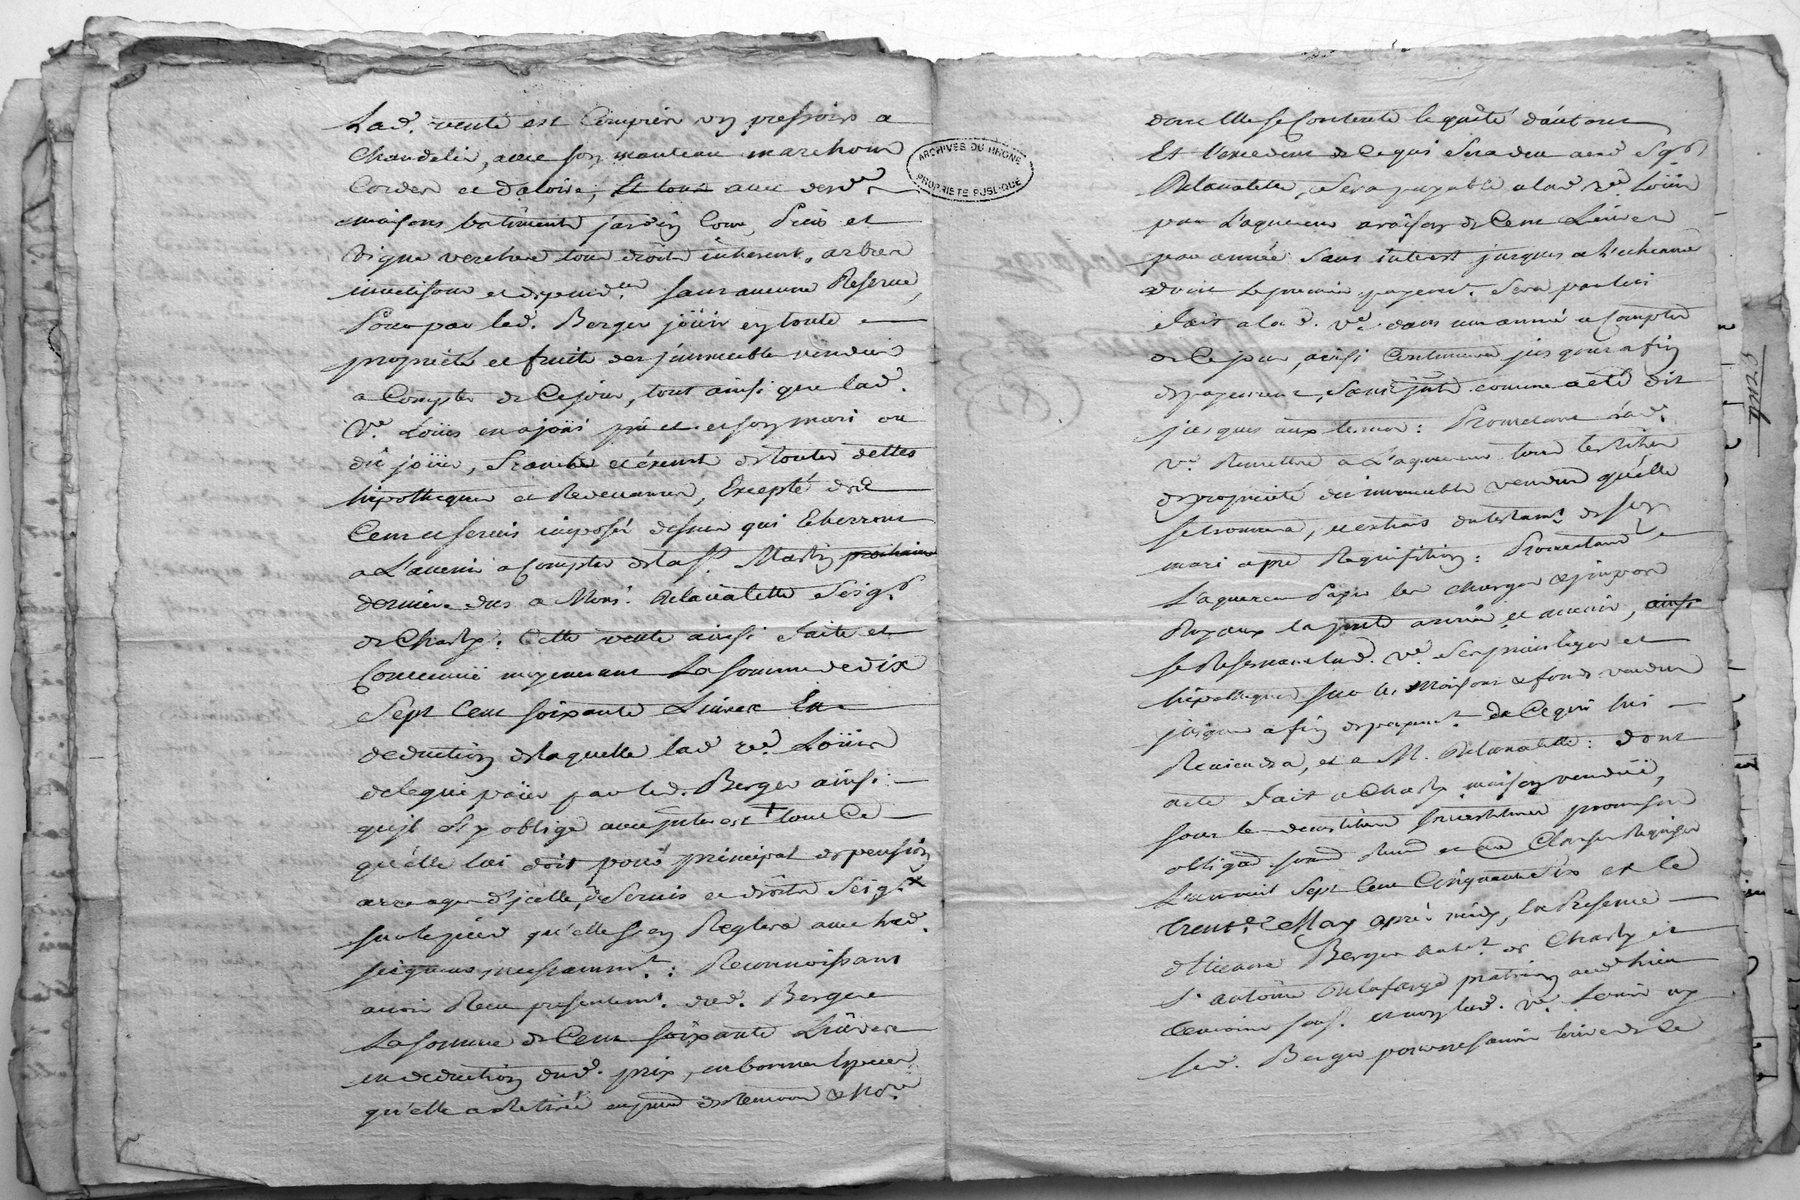 Lad. vente est Compris un pressoir a
Chandelie, avec son manteau marchons
Cordes et daloire, Et tout avec desd.
maisons batiments jardin Cour, Prés et
Vigne verchere tous droits inherent, arbres
Investisons et dependces sans aucune Reserve,
Pour par led. Berger joüir en toute
proprieté et fruits des jmmeuble vendus
a Compter de Cejour, tout ainsi que lad.
Ve. Loüis en a joüi et son mari ou
dû joüir, Franche et exemt de toutes dettes
hipotheques et Redevances, Excepté des
Cens et servis imposés dessus qui Echerront
a L'avenir a Compter de la St. Martin prochaine
derniere dus a Monsr. Delavalette Seigr.
de Charly. Cette vente ainsi faite et
Convenuë moyennant La somme de dix
Sept Cent soixante Livres En
deduction de laquelle lad ve. Loüis
delegue païer par led. Berger ainsi
qu'il s'y oblige avec jnterest + tout Ce
qu'elle lui doit pour principal de pension
arrerages d'jcelle, de Servis et droits Seigx
sur le pied qu'elle s'en Reglera avec led.
seigneur incessamment: Reconnoissant
avoir Recu presentemt. dud. Berger
La somme de Cent soixante Livres
en deduction dud. prix, en bonnes Especes
qu'elle a Retiré en presence des temoins & Nore
dont Elle se Contente le quitte d'autant
Et L'excedent de Ce qui Sera du aud Sgr
Delavalette, Sera payable a lad ve Loüis
par L'aquereur a raison de Cent Livres
par année Sans interest jusques a L'echeance
dont Le premier payemt. Sera par lui
fait a lad. Ve. dans une anné a Compter
de Ce jour, ainsi Continuera jusques a fin
de payement, Sans jnte comme a été dit
jusques aux termes: Promettant lad.
ve. Remettre a L'aquereur tous les titres
de proprieté des immeuble vendus qu'elle
se trouvera, et extrait du testamt. de son
mari a pre Requisition: Promettant
L'aquereur Païer les charges & impots
Royaux la presente année et avenir, ainsi
se Reservant lad. ve. Son privilege et
hipotheque sur les Maisons & fonds vendus
jusques a fin de payemt. de Ce qui lui
Reviendra, et a M. Delavalette: dont
acte fait a Charly maison venduë,
sous les devestitures investitures promesses
obligaõn soumõn Renõn et Clauses Requises
L'an mil Sept Cent Cinquante Six et le
trente May aprés midy, En Presence
d'Etienne Berger habt. de Charly et
Sr. Antoine Delafarge praticien aud lieu
temoins sousr. et non lad. ve. Louis ny
led. Berger pour ne savoir Ecrire de Ce